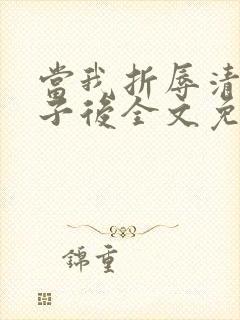 當我折辱清
子後全文免
錦重